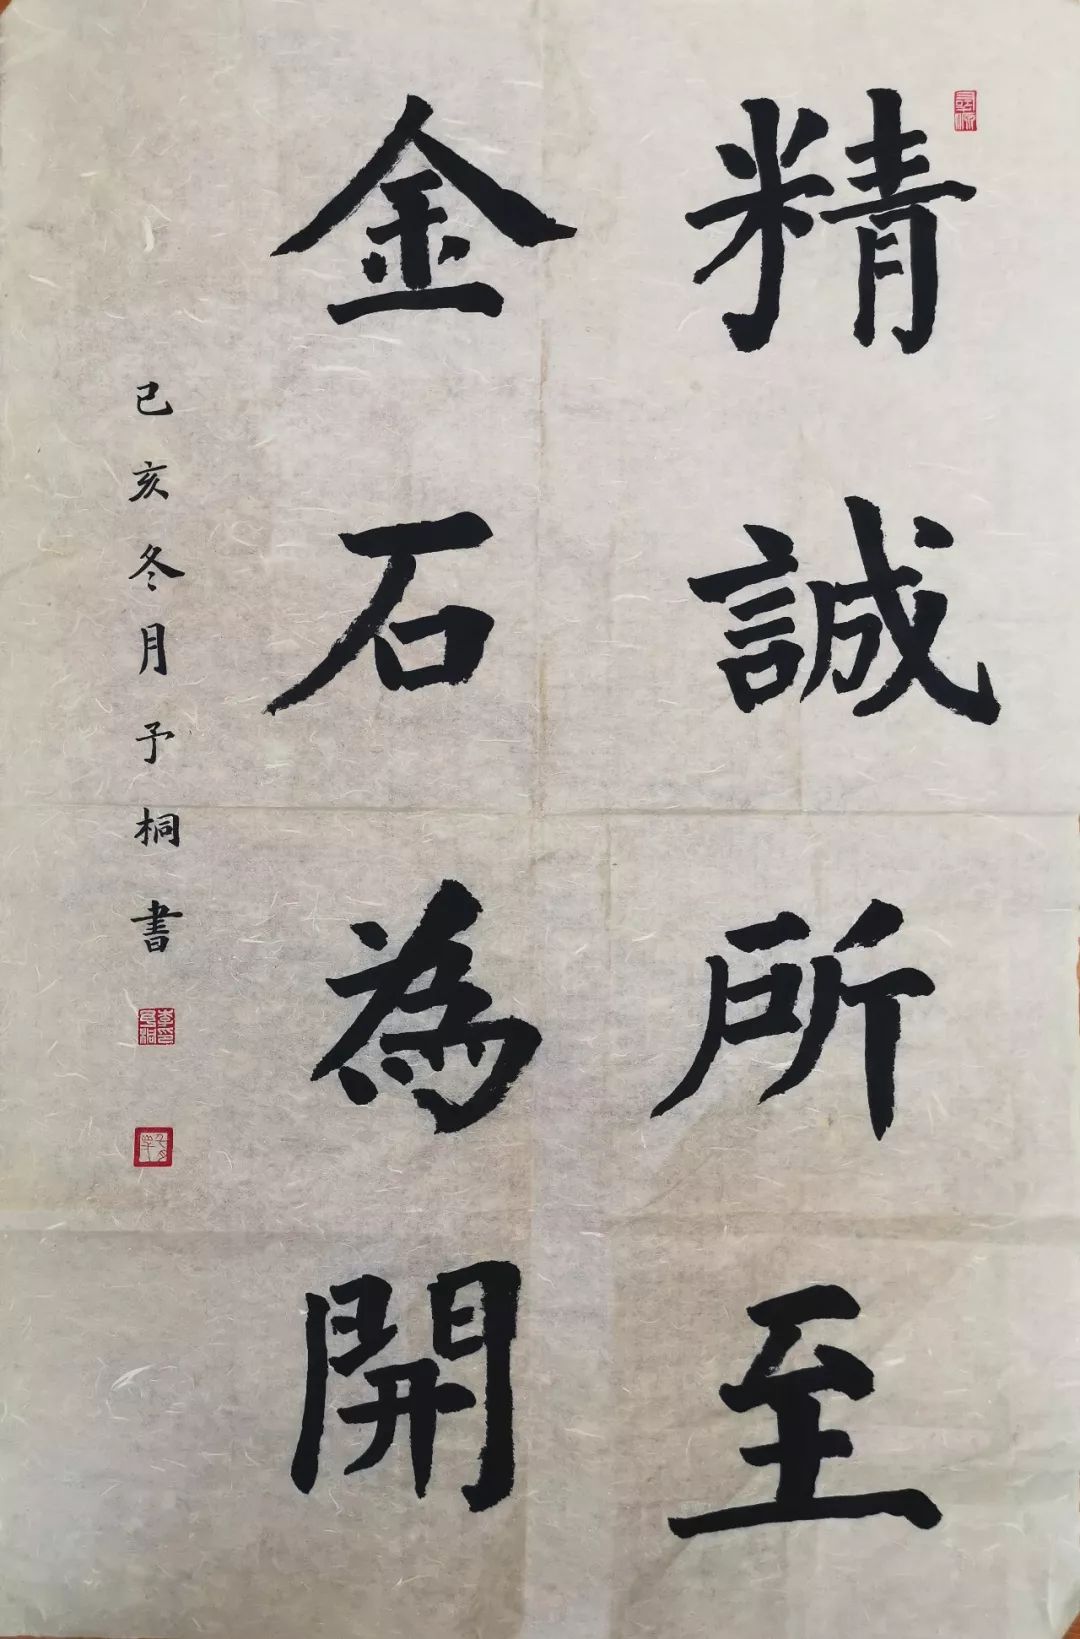 精誠所至
金石為開
己亥冬月予桐書